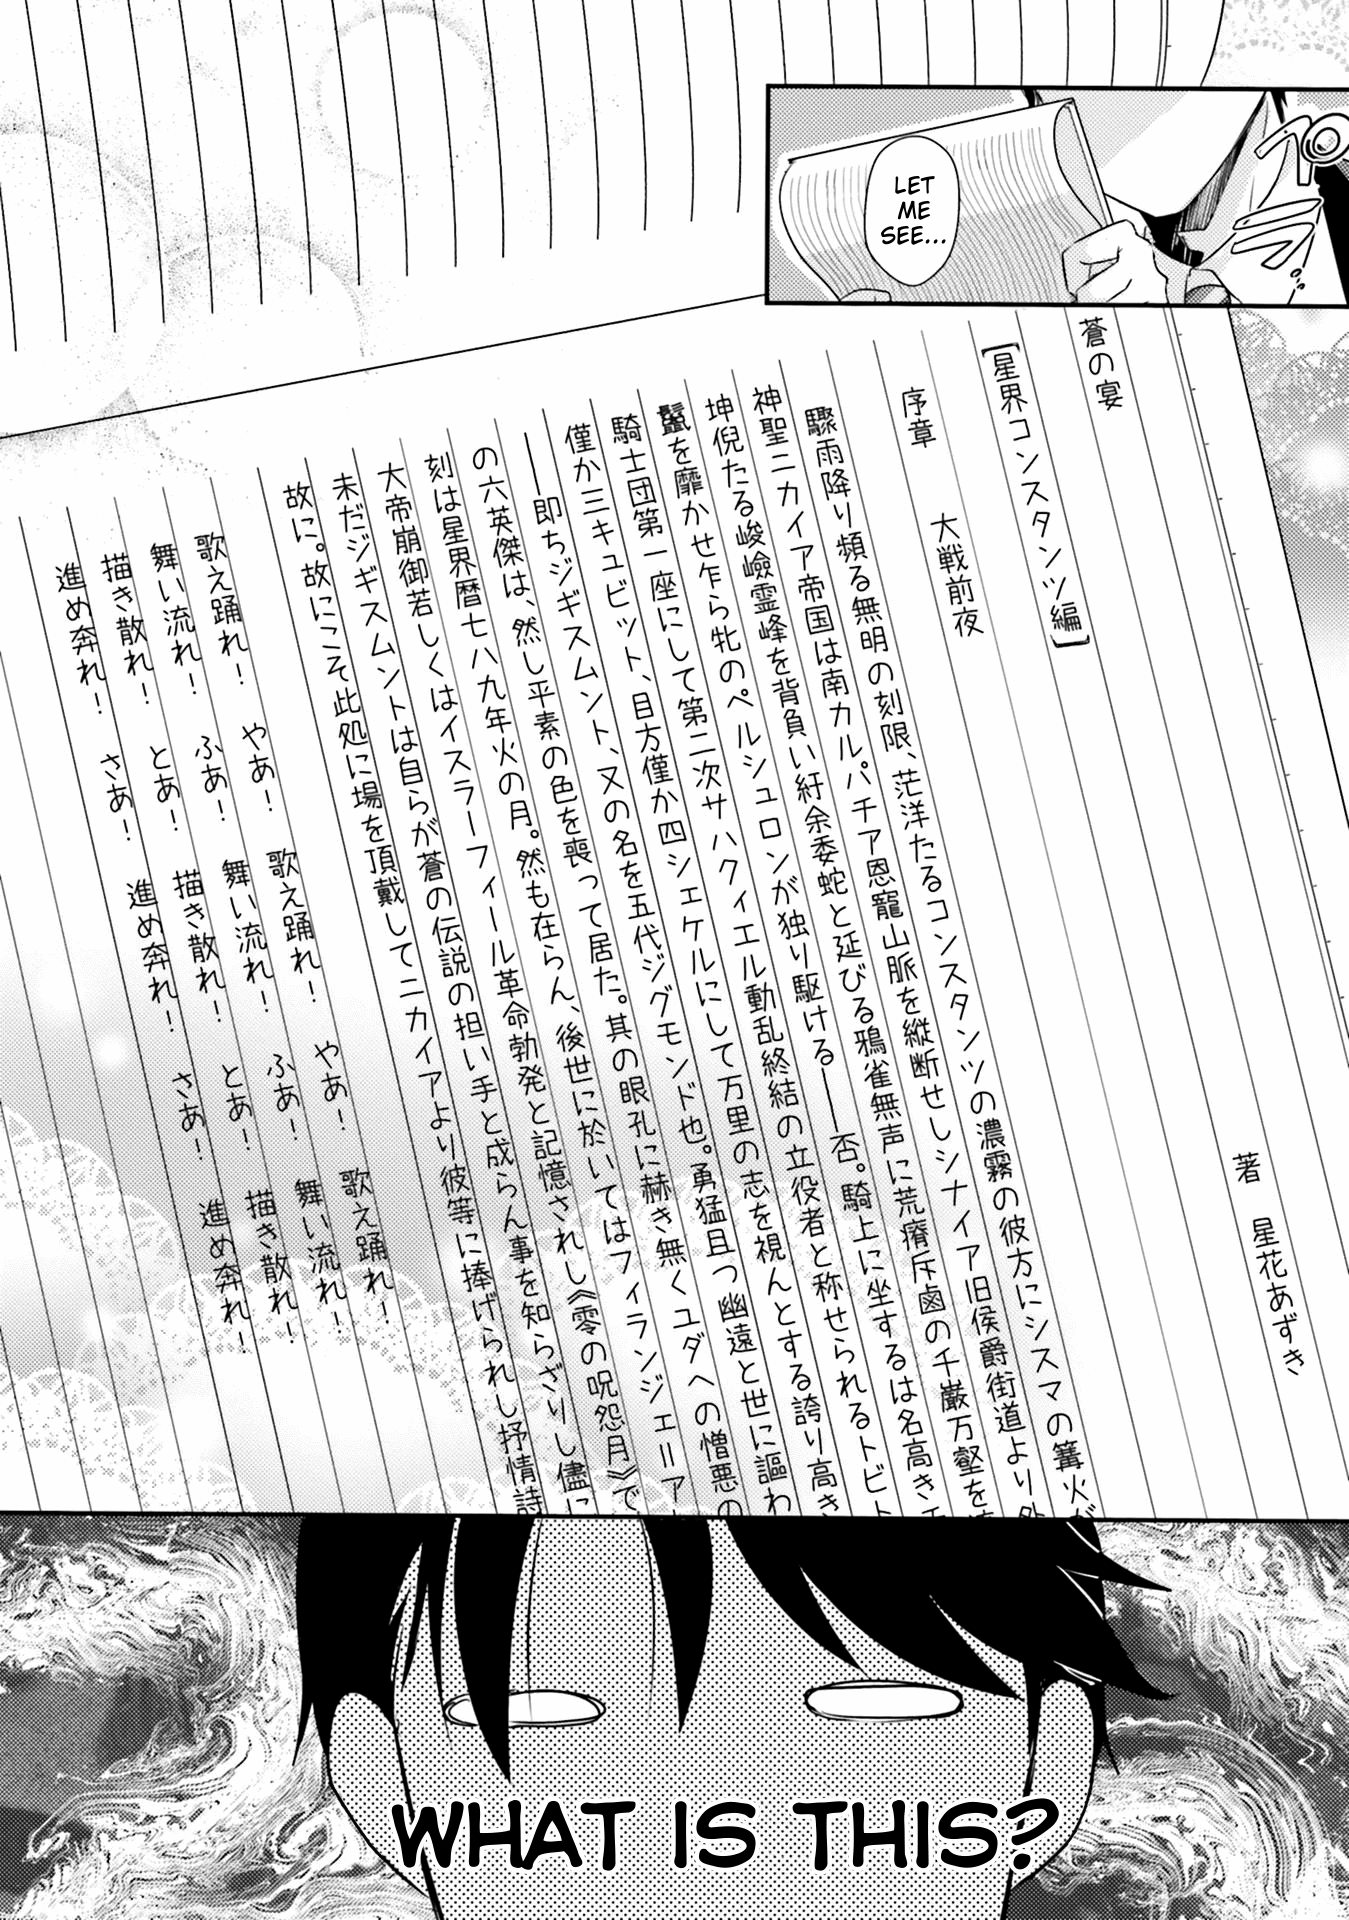 LET
ME
SEE...
ペラ…
蒼の宴
【星界コンスタンツ編】
著 星花あずき
序章 大戦前夜
驟雨降り頻る無明の刻限、茫洋たるコンスタンツの濃霧の彼方にシスマの篝火が
神聖ニカイア帝国は南カルパチア恩寵山脈を縦断せしシナイア旧侯爵街道より外
坤倪たる峻嶮霊峰を背負い紆余委蛇と延びる鴉雀無声に荒瘠斥鹵の千巌万壑を
鬣を靡かせ乍ら牝のペルシュロンが独り駆ける――否。騎上に坐するは名高きチ
騎士団第一座にして第二次サハクィエル動乱終結の立役者と称せられるトビト
僅か三キュビット、目方僅か四シェケルにして万里の志を視んとする誇り高き
――即ちジギスムント、又の名を五代ジグモンド也。勇猛且つ幽遠と世に謳わ
の六英傑は、然し平素の色を喪って居た。其の眼孔に赫き無くユダへの憎悪の
刻は星界暦七八九年火の月。然も在らん、後世に於いてはフィランジェ＝ア
大帝崩御若しくはイスラーフィール革命勃発と記憶されし《零の呪怨月》で
未だジギスムントは自らが蒼の伝説の担い手と成らん事を知らざりし儘に
故に。故にこそ此処に場を頂戴してニカイアより彼等に捧げられし抒情詩
歌え踊れ！ やあ！ 歌え踊れ！ やあ！ 歌え踊れ！
舞い流れ！ ふあ！ 舞い流れ！ ふあ！ 舞い流れ！
描き散れ！ とあ！ 描き散れ！ とあ！ 描き散れ！
進め奔れ！ さあ！ 進め奔れ！ さあ！ 進め奔れ！
WHAT IS THIS?